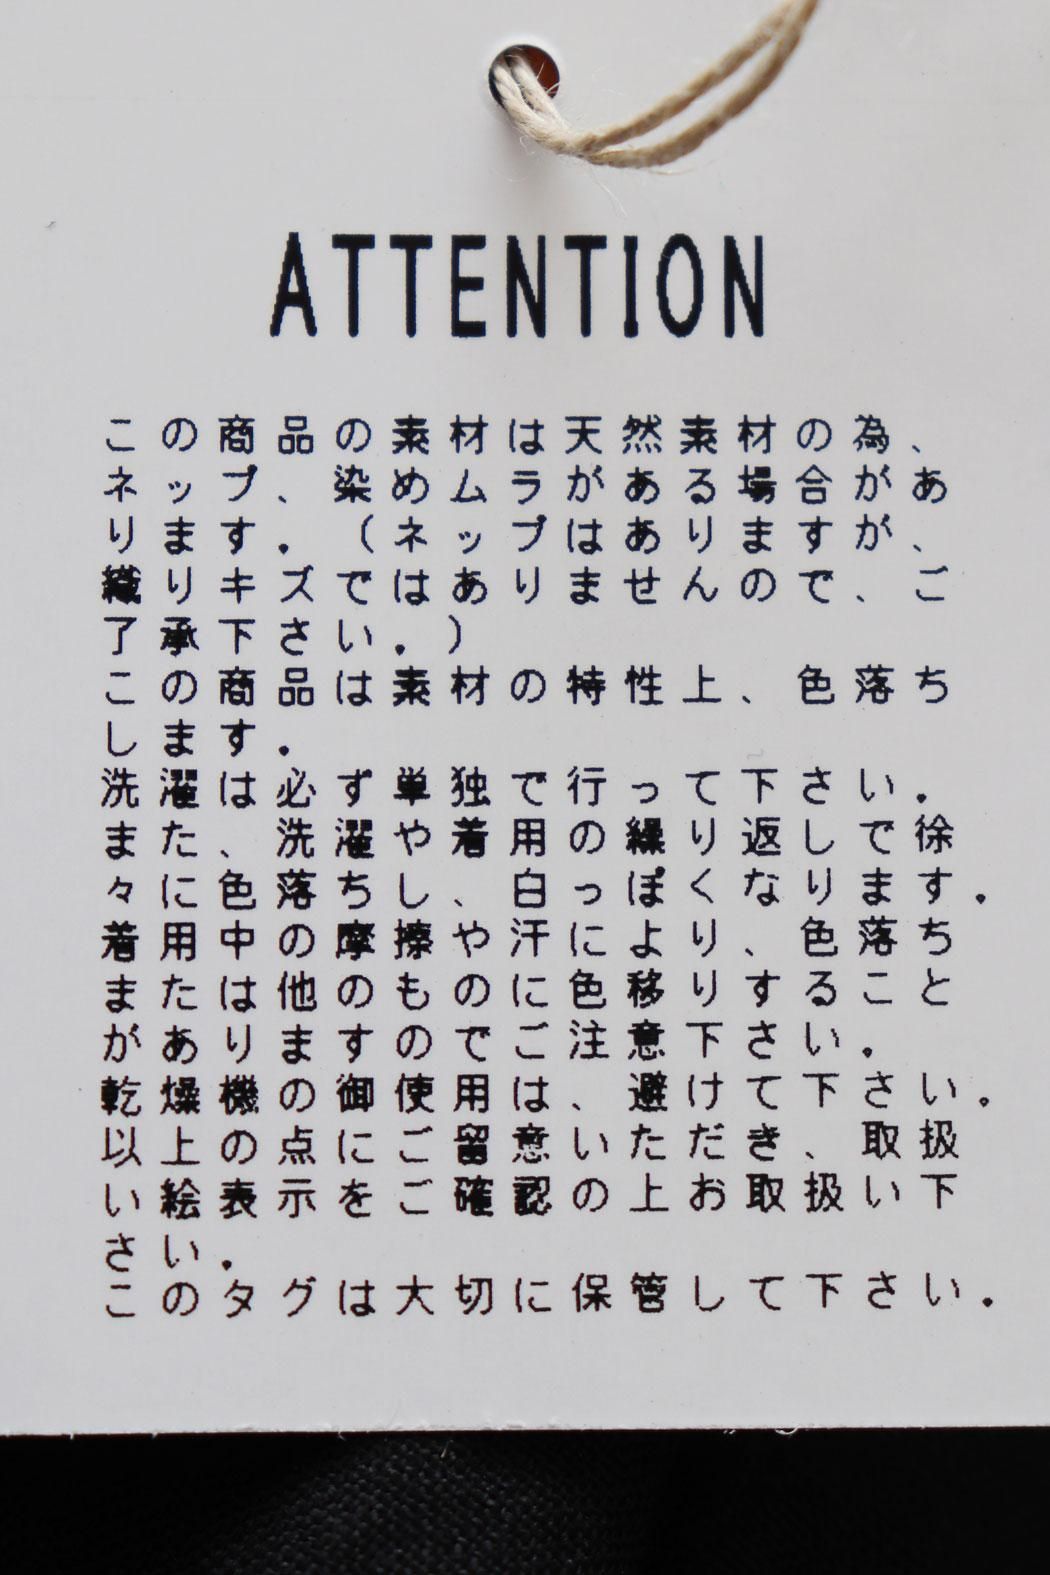 ATTENTION
この商品の素材は天然素材の為、
ネップ、染めムラがある場合があ
ります。(ネップはありますが、
織りキズではありませんので、ご
了承下さい。)
この商品は素材の特性上、色落ち
します。
洗濯は必ず単独で行って下さい。
また、洗濯や着用の繰り返しで徐
々に色落ちし、白っぽくなります。
着用中の摩擦や汗により、色落ち
または他のものに色移りすること
がありますのでご注意下さい。
乾燥機の御使用は、避けて下さい。
以上の点にご留意いただき、取扱
い絵表示をご確認の上お取扱い下
さい。
このタグは大切に保管して下さい。